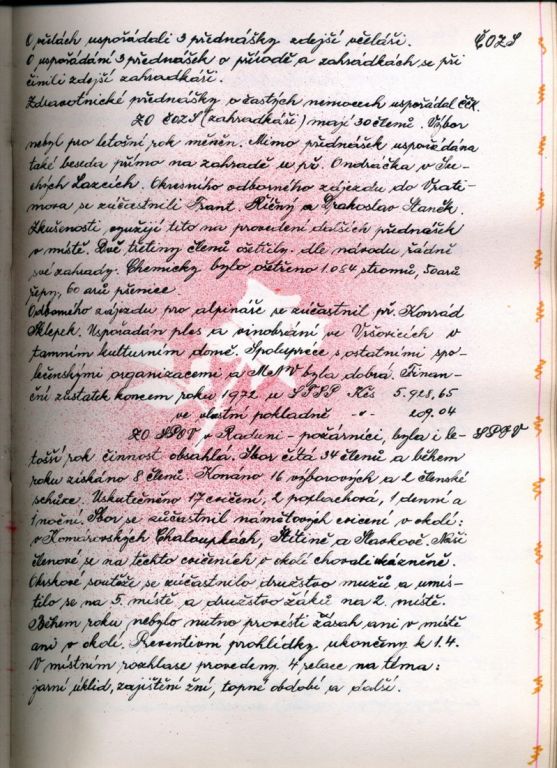 O včelách uspořádali 3 přednášky zdejší včeláři. ČOZS
O uspořádání 3 přednášek o přírodě a zahrádkách se při
činili zdejší zahradkáři.
Zdravotnické přednášky o častých nemocech uspořádal ČČK.
ZO ČOZS (zahradkáši) mají 30 členů. Výbor
nebyl pro letošní rok měněn. Mimo přednášek uspořádána
také beseda přímo na zahradě u př. Ondráčka v Su-
chých Lazcích. Okresního odborného zájezdu do Vrati-
mova se zúčastnili Frant. Říčný a Drahoslav Staněk.
Zkušenosti využijí tito na provedení dalších přednášek
v místě. Dvě třetiny členů ošetřily dle návodu řádně
své zahrady. Chemicky bylo ošetřeno 1.084 stromů, 50 arů
řepy, 60 arů pšenice.
Odborného zájezdu pro alpináře se zúčastnil př. Konrád
Sklepek. Uspořádán ples a vinobraní ve Vršovicích v
tamním kulturním domě. Spolupráce s ostatními spo-
lečenskými organizacemi a MěNV byla dobrá. Finan-
ční zůstatek koncem roku 1972 u Kčs 5.928,65
ve vlastní pokladně -"- 209.04
ZO SPOV v Raduni - požárníci, byla i le- SPOV
tošší rok činnost obsáhlá. Sbor čítá 34 členů a během
roku získáno 8 členů. Konáno 16 výborových a 2 členské
schůze. Uskutečněno 17 cvičení, 2 poplachová, 1 denní a
1 noční. Sbor se zúčastnil námětových cvičení v okolí:
v Komárovských Chaloupkách, Štítině a Slavkově. Naši
členové se na těchto cvičeních v okolí chovali ukázněně.
Okrskové soutěže se zúčastnilo družstvo mužů a umís-
tilo se na 5. místě a družstvo žáků na 2. místě.
Během roku nebylo nutno provésti zásah ani v místě
ani v okolí. Preventivní prohlídky ukončeny k 1.4.
V místním rozhlase provedeny 4 relace na téma:
jarní úklid, zajištění žní, topné období a další.